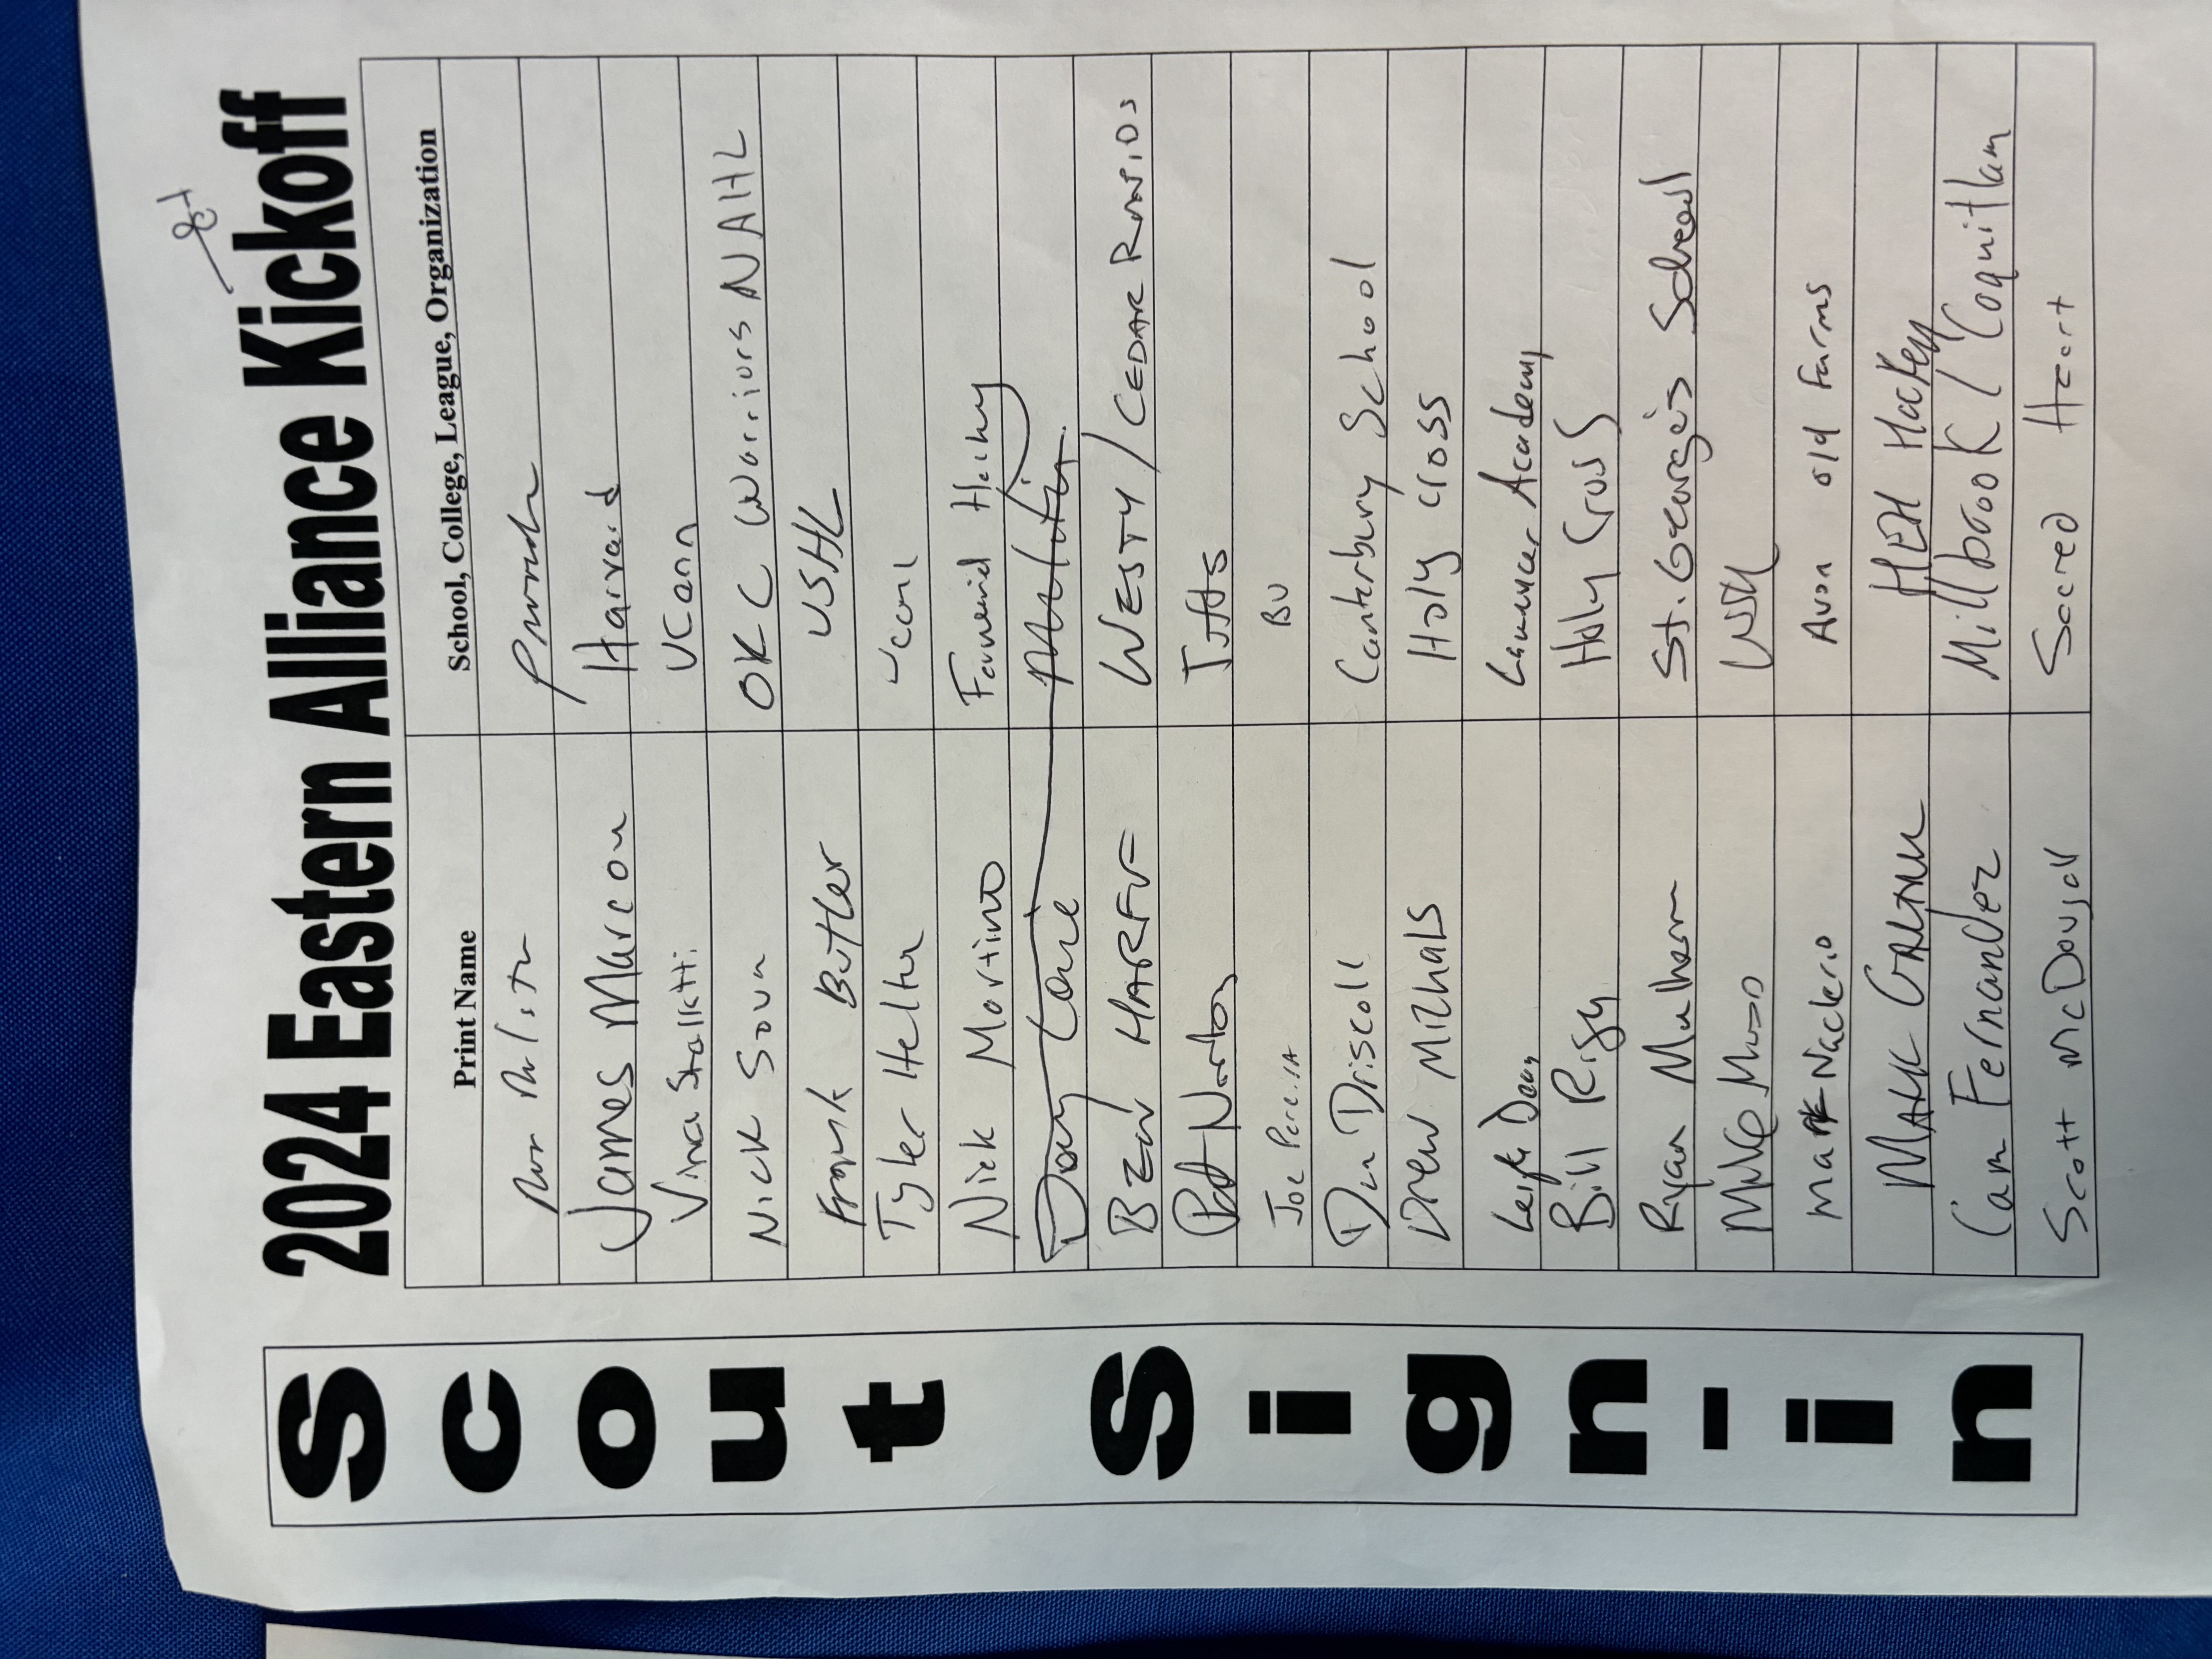 2024 Eastern Alliance Kickoff
Scout Sign-in
Print Name School, College, League, Organization
James Marcou Harvard
Vince Stalletti UConn
Nick Sova OKC Warriors NAHL
Frank Butler USHL
Tyler Helton
Nick Martino Farwerid Hockey
Ben HARFF WESTY / CEDAR RAPIDS
Pat Norton Tufts
Joe Pereira BU
Dan Driscoll Canterbury School
Drew Michals Holy Cross
Leigh Dean Lawrence Academy
Bill Riga Holy Cross
Ryan Mulhern St. George's School
Mike
Mark Naclerio Avon old Farms
MARK HEH Hockey
Cam Fernandez Millbrook / Coquitlam
Scott McDougall Sacred Heart